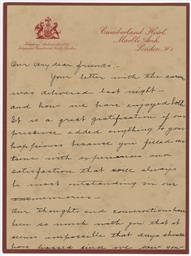 Cumberland Hotel,
Marble Arch,
London, W.1.
Our very dear friends:-
Your letter with the
was delivered last night -
and how we have enjoyed both
It is a great gratification if our
presence added anything to your
happiness because you filled our
time with experiences and
satisfaction that will always
be most outstanding in our
memories.
Our thoughts and conversation have
been so much with you that it
seems impossible that days should
have passed since we saw you